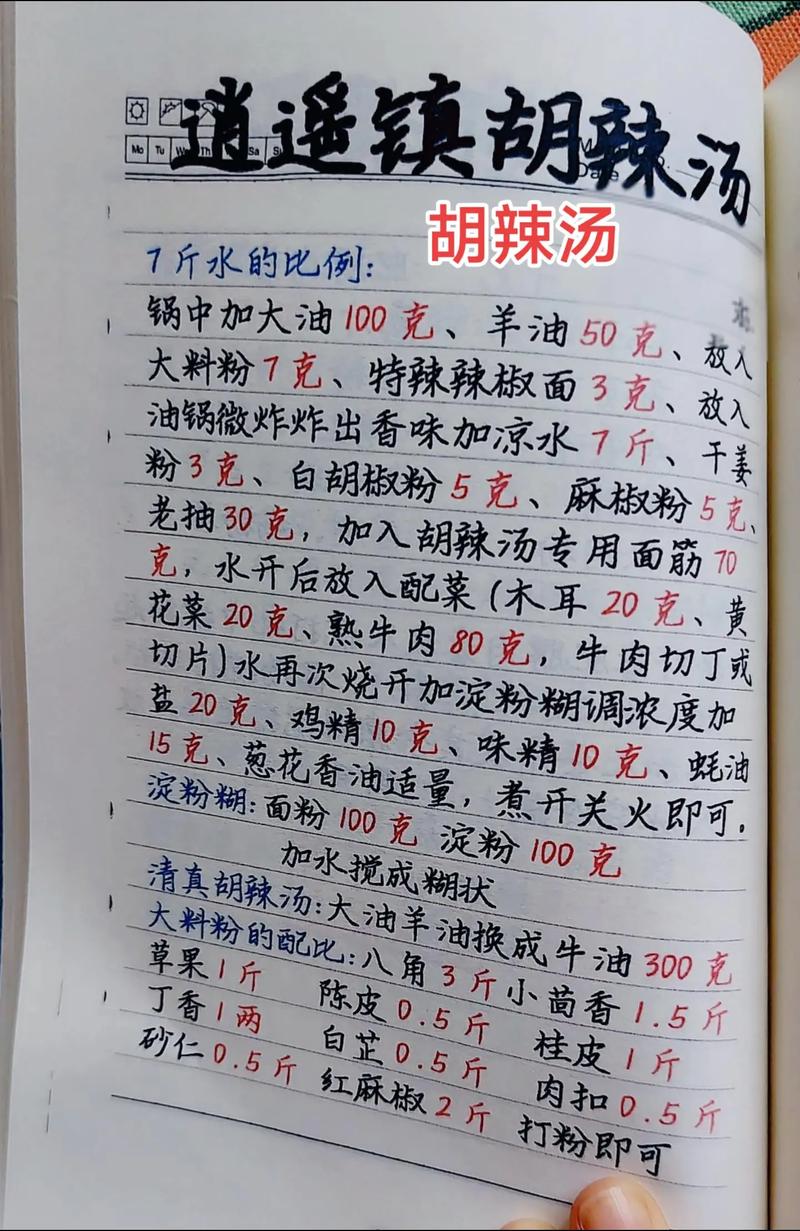 Mo Tu We Th Sa
逍遥镇胡辣汤
胡辣汤
7斤水的比例:
锅中加大油100克、羊油50克、放入
大料粉7克、特辣辣椒面3克、放入
油锅微炸炸出香味加凉水7斤、干姜
粉3克、白胡椒粉5克、麻椒粉5克、
老抽30克,加入胡辣汤专用面筋70
克,水开后放入配菜(木耳20克、黄
花菜20克、熟牛肉80克,牛肉切丁或
切片)水再次烧开加淀粉糊调浓度加
盐20克、鸡精10克、味精10克、蚝油
15克、葱花香油适量,煮开关火即可。
淀粉糊:面粉100克 淀粉100克
加水搅成糊状
清真胡辣汤:大油羊油换成牛油300克
大料粉的配比:八角3斤小茴香1.5斤
草果1斤 陈皮0.5斤 桂皮1斤
丁香1两 白芷0.5斤 肉扣0.5斤
砂仁0.5斤 红麻椒2斤 打粉即可